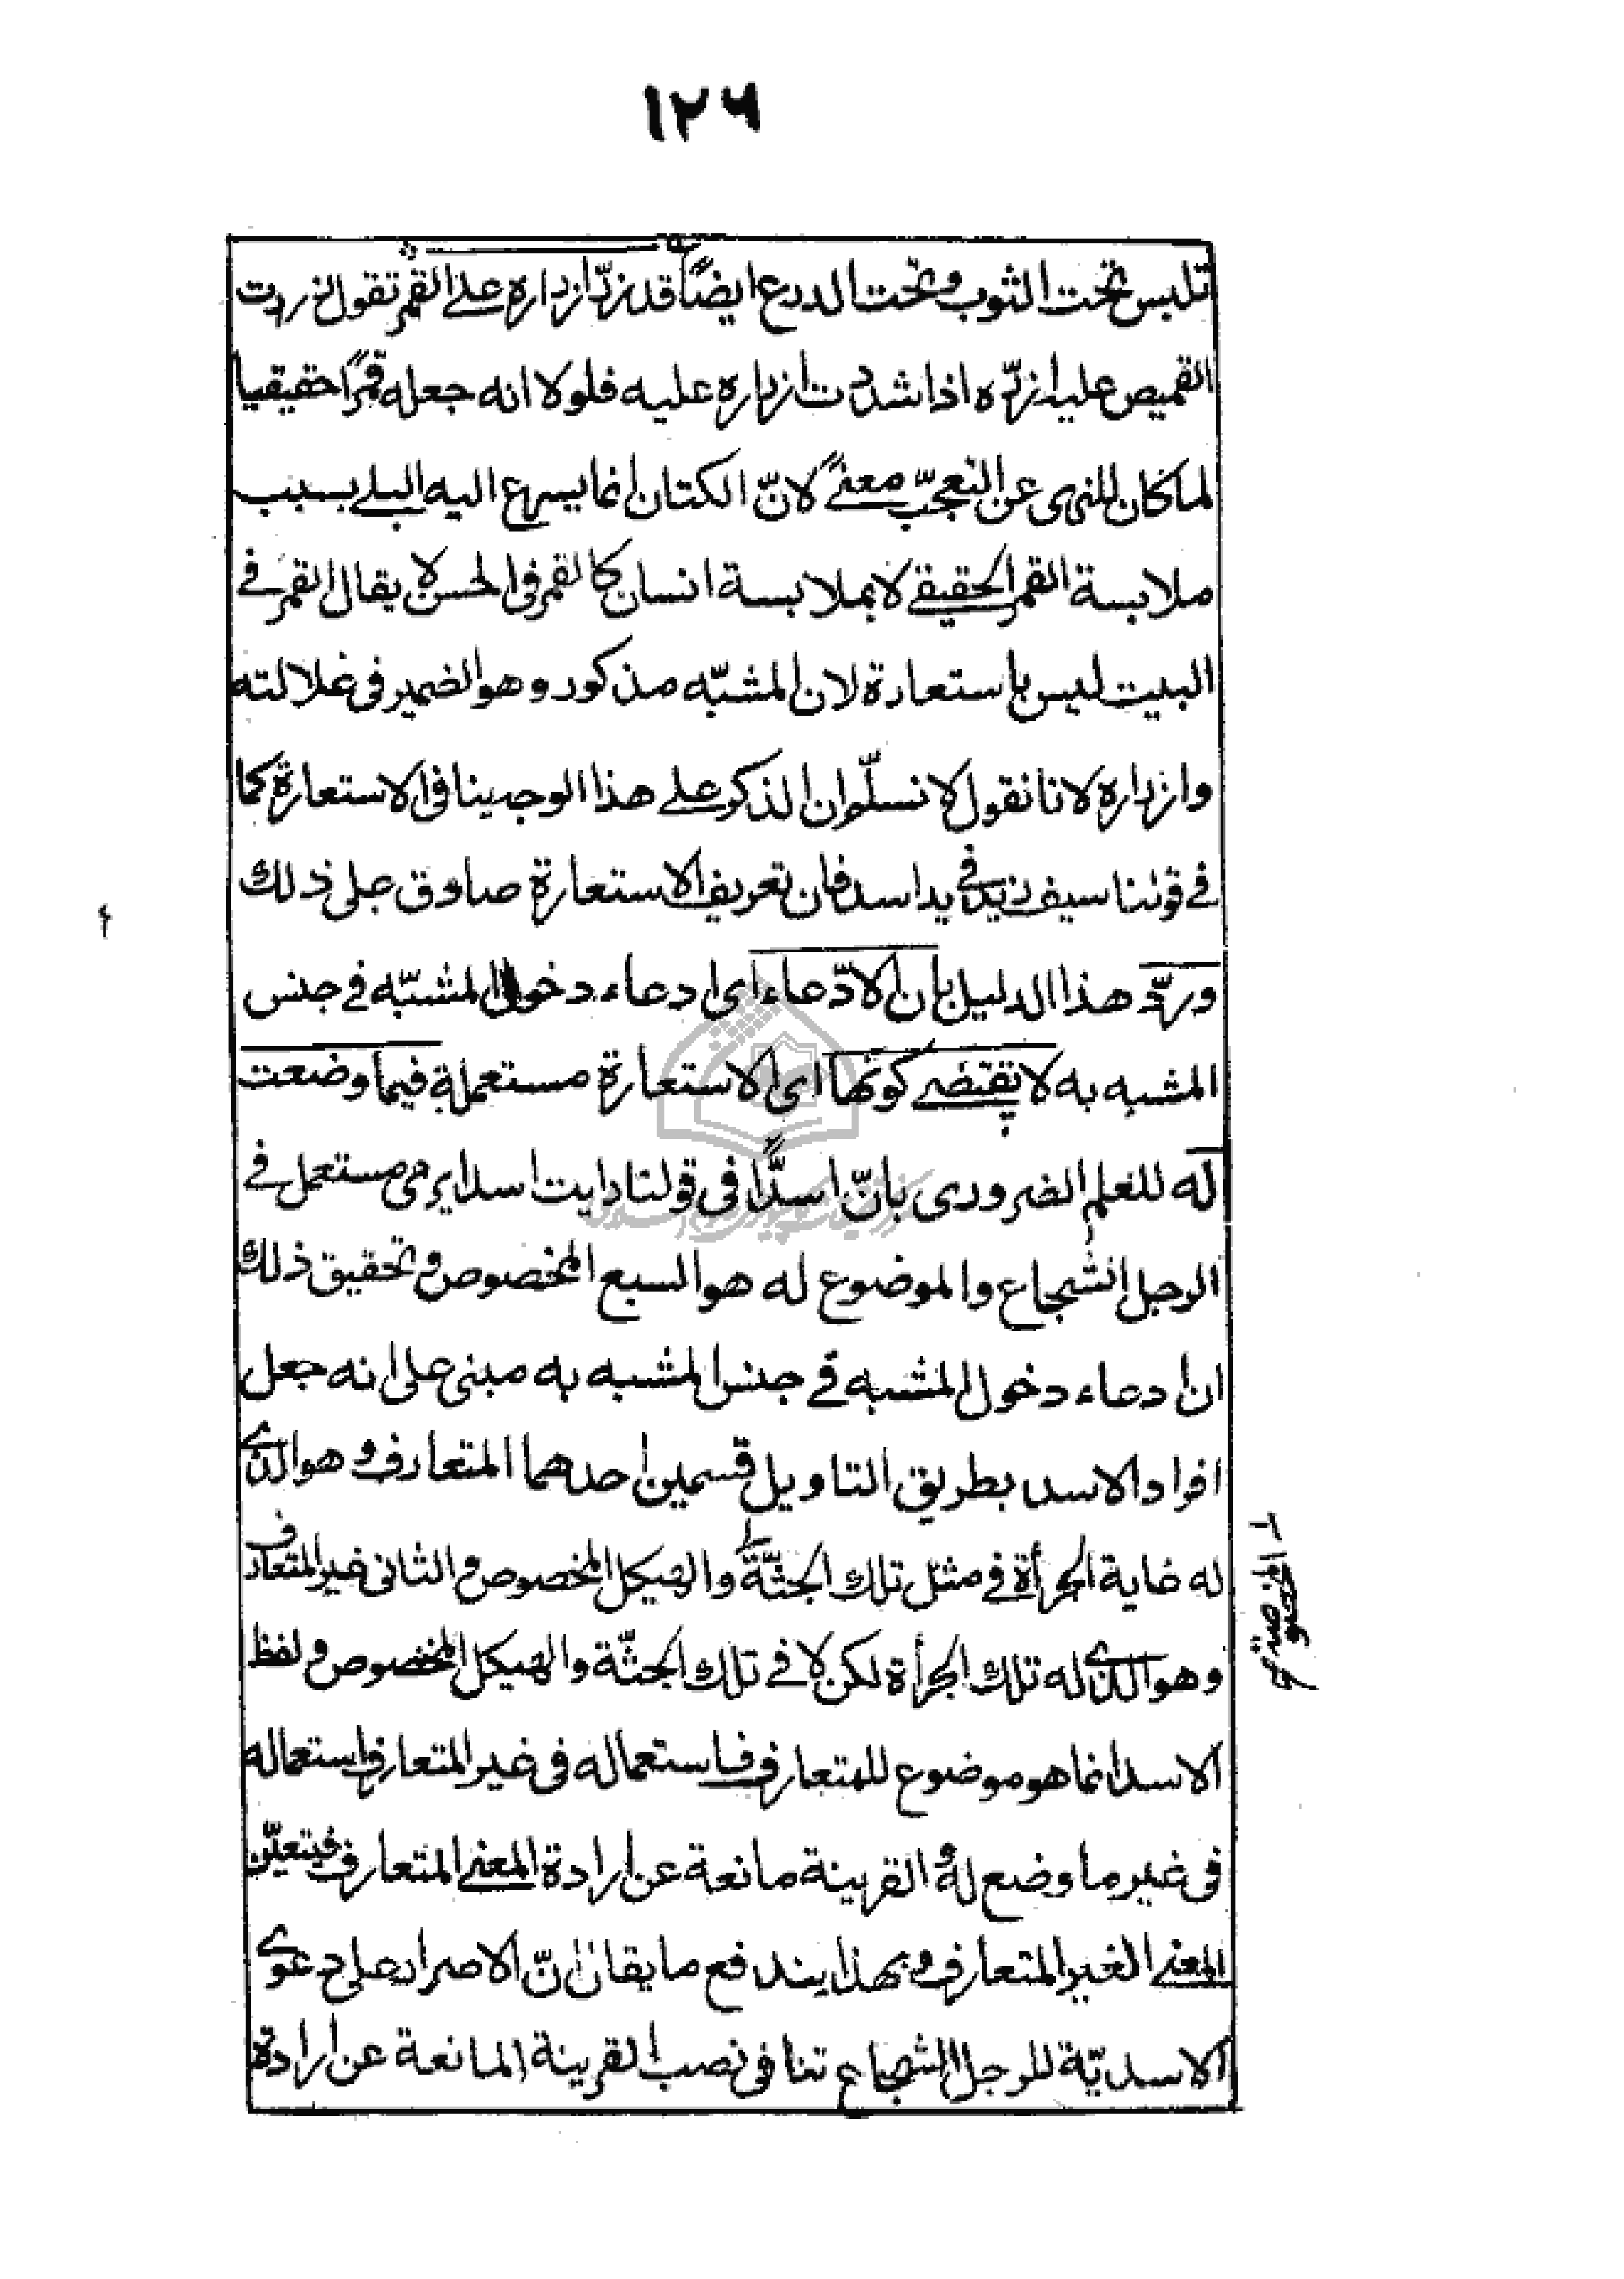 ١٢٦
تلبس تحت الثوب وتحت الدرع ايضًا قد زرّ ازراره على القمر تقول زررت
القميص عليه ازرّه اذا شددت ازراره عليه فلولا انه جعله قمرًا حقيقيا
لما كان للنهى عن التعجّب معنىً لانّ الكتان انما يسرع اليه البلى بسبب
ملابسة القمر الحقيقى لا بملابسة انسان كالقمر فى الحسن لا يقال القمر فى
البيت ليس باستعارة لان المشبّه مذكور وهو الضمير فى غلالته
وازراره لانا نقول لا نسلّم ان الذكر على هذا الوجه ينافى الاستعارة كما
فى قولنا سيف زيد فى يد اسد فان تعريف الاستعارة صادق على ذلك
وردّ هذا الدليل بان الادّعاء اى ادعاء دخول المشبّه فى جنس
المشبه به لا تقتضى كونها اى الاستعارة مستعملة فيما وضعت
له للعلم الضرورى بانّ اسدًا فى قولنا رايت اسدا يرمى مستعمل فى
الرجل الشجاع والموضوع له هو السبع المخصوص وتحقيق ذلك
ان ادعاء دخول المشبه فى جنس المشبه به مبنى على انه جعل
افراد الاسد بطريق التاويل قسمين احدهما المتعارف وهو الذى
له غاية الجرأة فى مثل تلك الجثّة والهيكل المخصوص والثانى غير المتعارف
وهو الذى له تلك الجرأة لكن لا فى تلك الجثّة والهيكل المخصوص ولفظ
الاسد انما هو موضوع للمتعارف فاستعماله فى غير المتعارف استعماله
فى غير ما وضع له والقرينة مانعة عن ارادة المعنى المتعارف فيتعيّن
المعنى الغير المتعارف وبهذا يندفع ما يقال انّ الاصرار على دعوى
الاسديّة للرجل الشجاع تنافى نصب القرينة المانعة عن ارادة